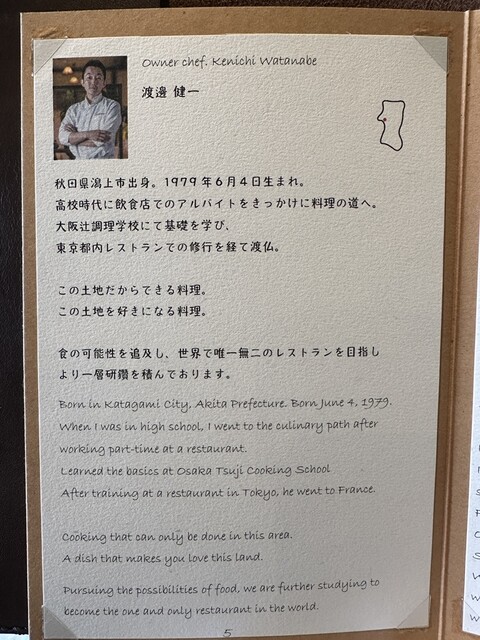 Owner chef. Kenichi Watanabe
渡邉 健一
秋田県潟上市出身。1979年6月4日生まれ。
高校時代に飲食店でのアルバイトをきっかけに料理の道へ。
大阪辻調理学校にて基礎を学び、
東京都内レストランでの修行を経て渡仏。
この土地だからできる料理。
この土地を好きになる料理。
食の可能性を追及し、世界で唯一無二のレストランを目指し
より一層研鑽を積んでおります。
Born in Katagami City, Akita Prefecture. Born June 4, 1979.
When I was in high school, I went to the culinary path after
working part-time at a restaurant.
Learned the basics at Osaka Tsuji Cooking School
After training at a restaurant in Tokyo, he went to France.
Cooking that can only be done in this area.
A dish that makes you love this land.
Pursuing the possibilities of food, we are further studying to
become the one and only restaurant in the world.
5